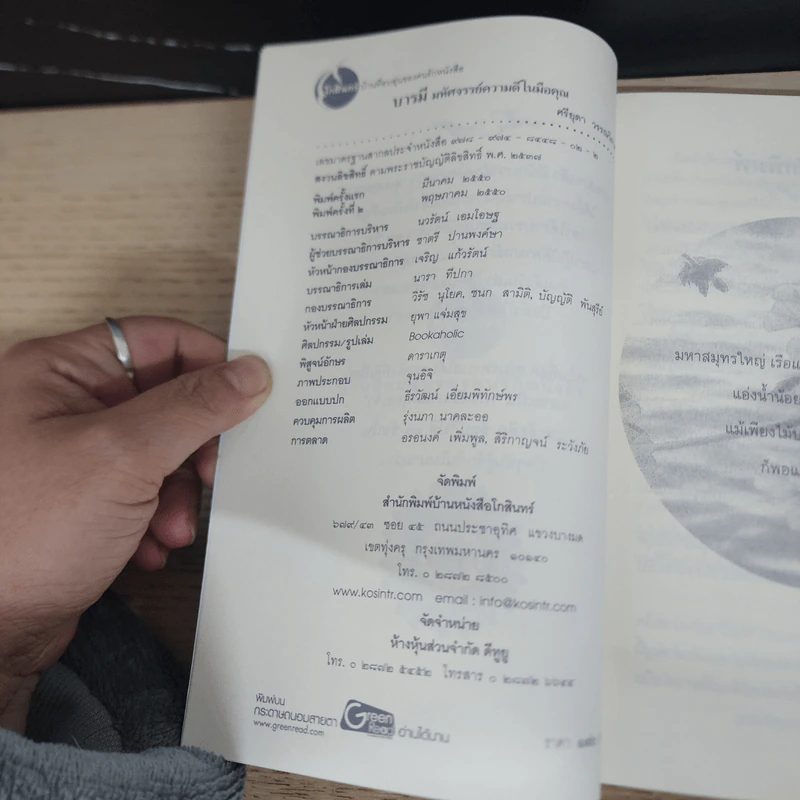 โกสินทร์ บ้านที่อบอุ่นของคนรักหนังสือ
บารมี มหัศจรรย์ความดีในมือคุณ
ศรียุดา
เลขมาตรฐานสากลประจำหนังสือ ๙๗๘ - ๙๗๔ - ๘๔๔๘ - ๐๒ - ๒
สงวนลิขสิทธิ์ ตามพระราชบัญญัติลิขสิทธิ์ พ.ศ. ๒๕๓๗
พิมพ์ครั้งแรก มีนาคม ๒๕๕๐
พิมพ์ครั้งที่ ๒ พฤษภาคม ๒๕๕๐
บรรณาธิการบริหาร นวรัตน์ เอมโอษฐ
ผู้ช่วยบรรณาธิการบริหาร ชาตรี ปานพงศ์ษา
หัวหน้ากองบรรณาธิการ เจริญ แก้วรัตน์
บรรณาธิการเล่ม นารา ทีปกา
กองบรรณาธิการ วิรัช นุโยค, ชนก สามิติ, บัญญัติ พันสุรีย์
หัวหน้าฝ่ายศิลปกรรม ยุพา แจ่มสุข
ศิลปกรรม/รูปเล่ม Bookaholic
พิสูจน์อักษร ดาราเกตุ
ภาพประกอบ จุนอิจิ
ออกแบบปก ธีรวัฒน์ เอี่ยมพิทักษ์พร
ควบคุมการผลิต รุ่งนภา นาคละออ
การตลาด อรอนงค์ เพิ่มพูล, สิริกาญจน์ ระวังภัย
จัดพิมพ์
สำนักพิมพ์บ้านหนังสือโกสินทร์
๖๗๙/๔๓ ซอย ๔๕ ถนนประชาอุทิศ แขวงบางมด
เขตทุ่งครุ กรุงเทพมหานคร ๑๐๑๔๐
โทร. ๐ ๒๘๗๒ ๘๕๐๐
www.kosintr.com email : info@kosintr.com
จัดจำหน่าย
ห้างหุ้นส่วนจำกัด ดีทูยู
โทร. ๐ ๒๘๗๒ ๕๔๕๒ โทรสาร ๐ ๒๘๗๒
พิมพ์บน
กระดาษถนอมสายตา
www.greenread.com
Green Read อ่านได้นาน
ราคา
มหาสมุทรใหญ่ เรือแ
แอ่งน้ำน้อย
แม้เพียงใบ้บ
ก็พอแ